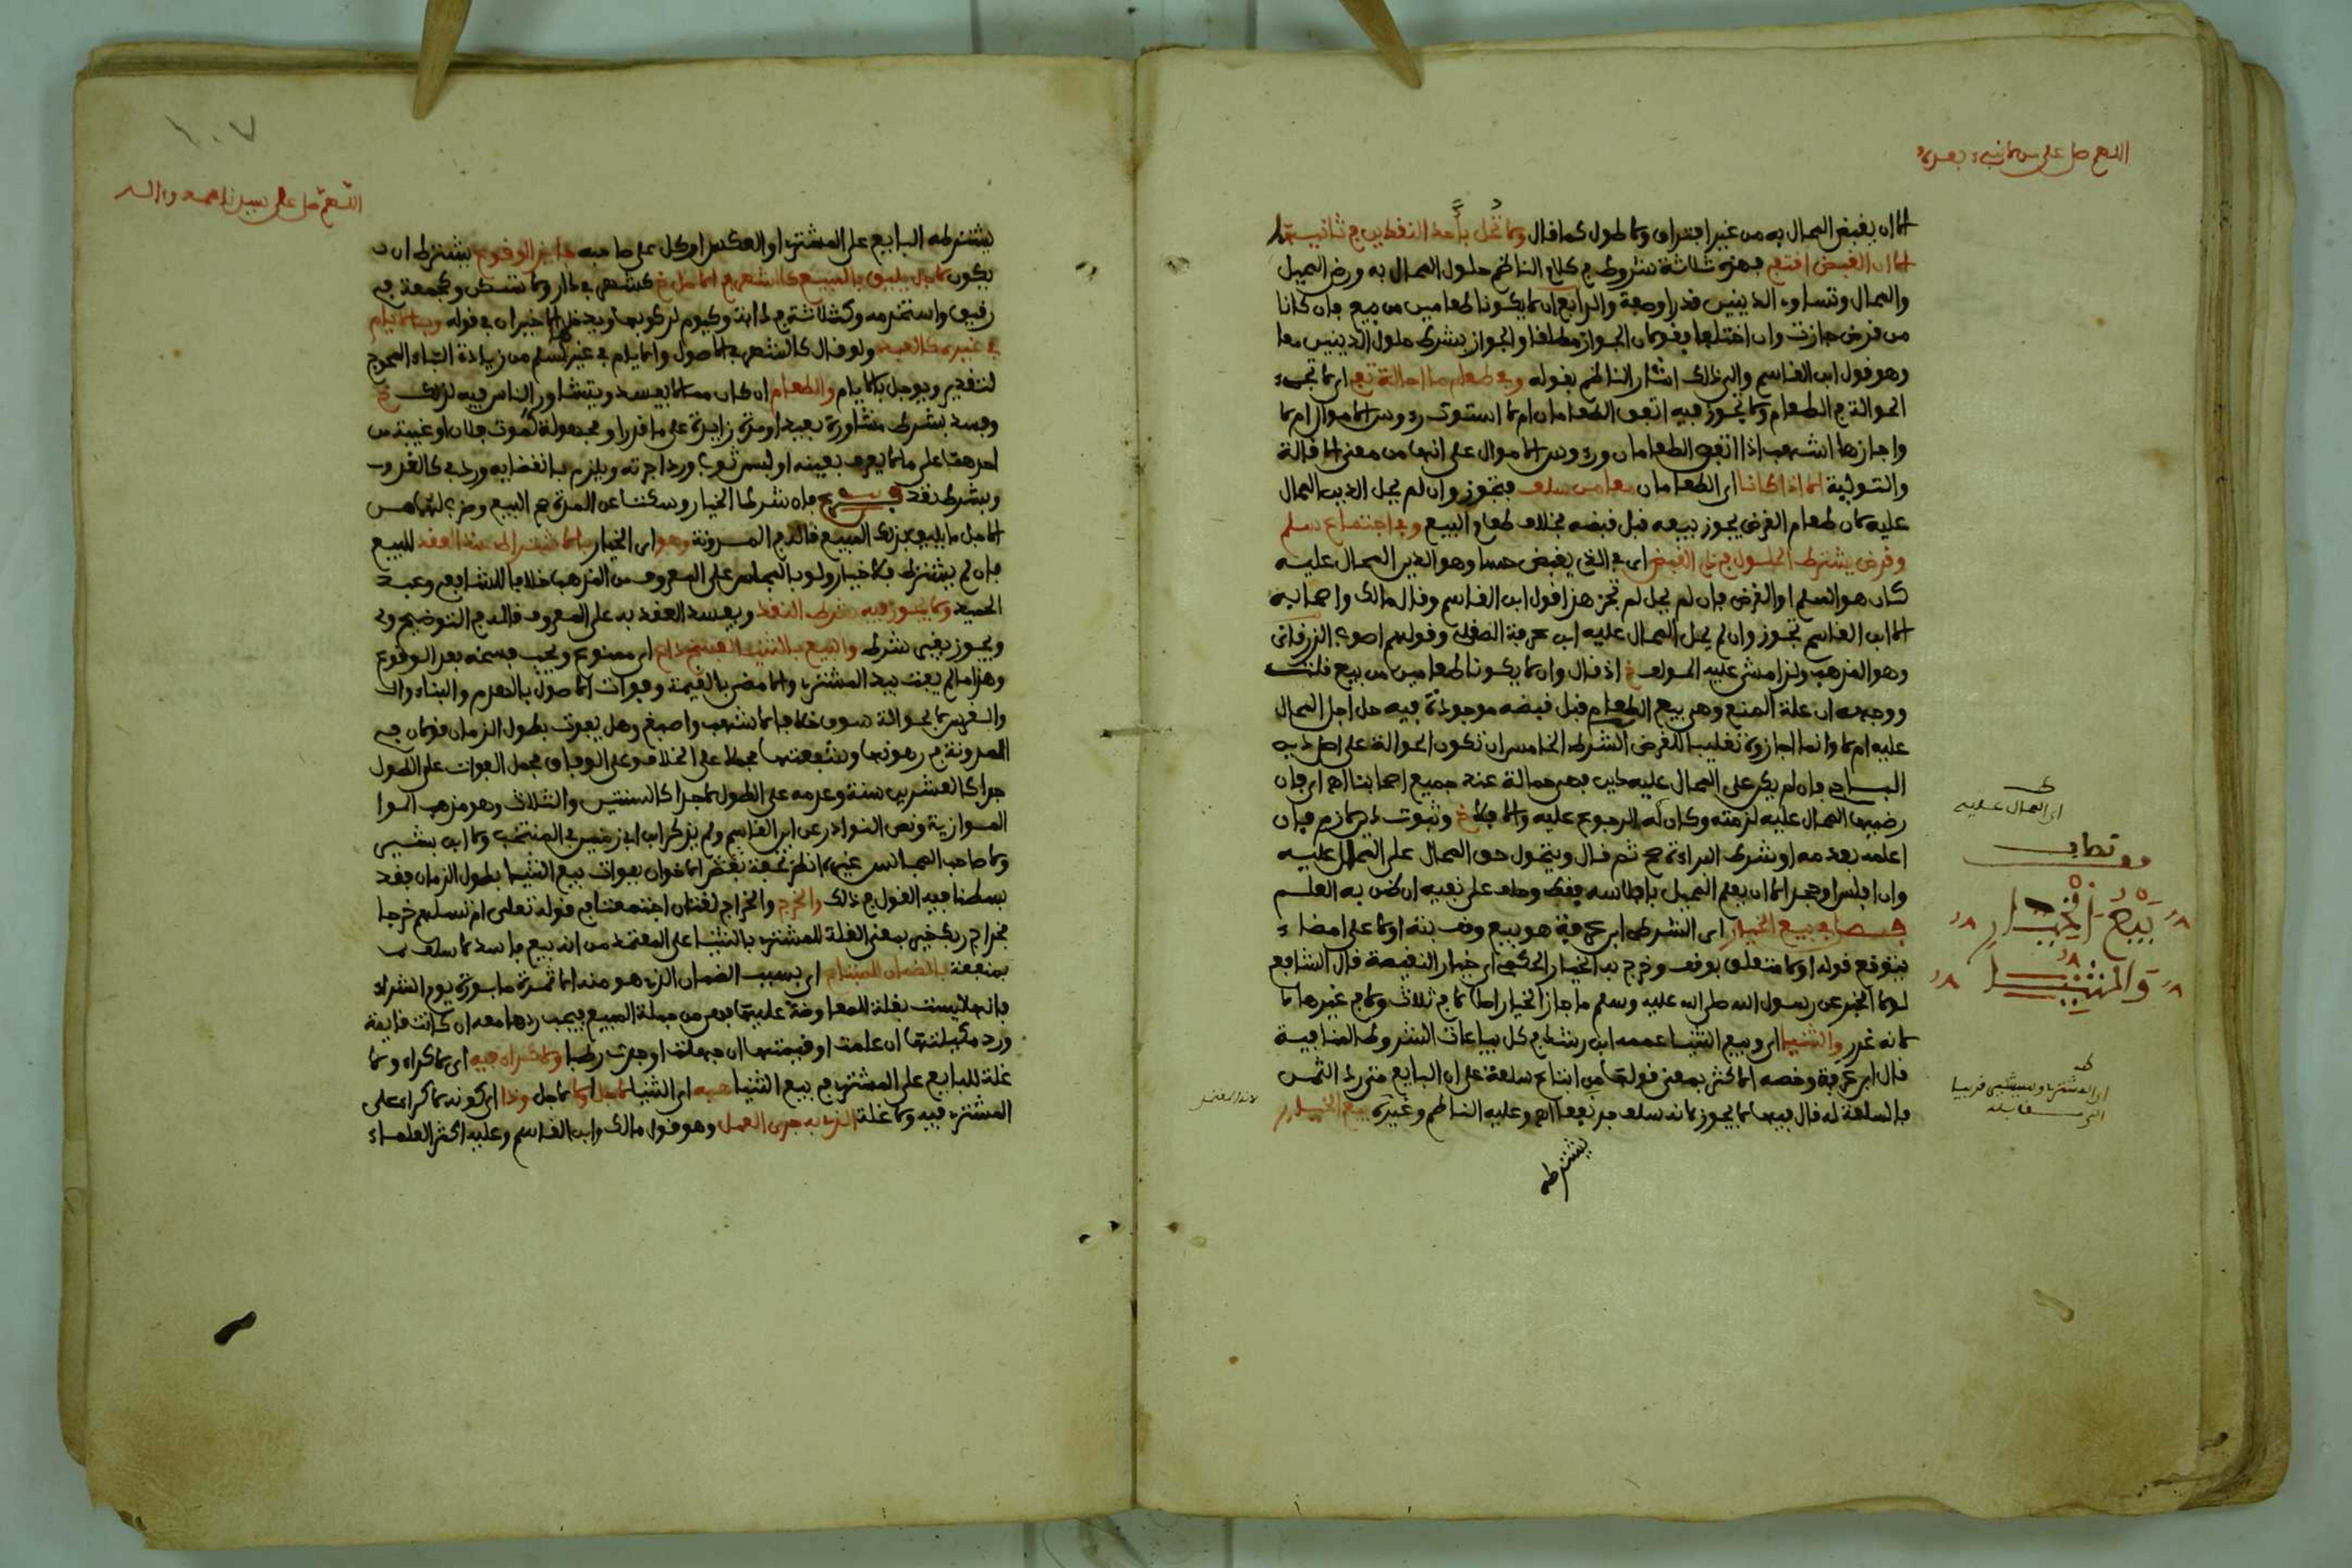 اللهم صل على من لا نبيء بعده
الا ان يقبض المحال به من غير افتراق ولا طول كما قال ولا تحل بأحد النقدين في ثانيهما
الا ان القبض اقتفي فهذه ثلاثة شروط في كلام الناظم حلول المحال به ورضى المحيل
والمحال وتساوي الدينين قدرا وصفة والرابع ان لا يكونا طعامين من بيع فان كانا
من قرض جازت وان اختلفا فقولان الجواز مطلقا والجواز بشرط حلول الدينين معا
وهو قول ابن القاسم والى ذلك اشار الناظم بقوله وفي طعام ما احالة تفي اي لا تجوز
الحوالة في الطعام ولا تجوز فيه اتفق الطعامان ام لا استوت رءوس الاموال ام لا
واجازها اشهب اذا اتفق الطعامان ورءوس الاموال على انها من معنى الاقالة
والتولية الا اذا كانا اي الطعامان معا من سلف فتجوز وان لم يحل الدين المحال
عليه لان طعام القرض يجوز بيعه قبل قبضه بخلاف طعام البيع وفي اجتماع سلم
وقرض يشترط الحلول في ذي القبض اي في الذي يقبض حسا وهو الدين المحال عليه
كان هو السلم او القرض فان لم يحل لم تجز هذا قول ابن القاسم وقال مالك واصحابه
الا ابن القاسم تجوز وان لم يحل المحال عليه ابن عرفة الصقلي وقولهم اصوب الزرقاني
وهو المذهب ولذا مشى عليه المولف خ اذ قال وان لا يكونا طعامين من بيع قلت
ووجهه ان علة المنع وهي بيع الطعام قبل قبضه موجودة فيه حل اجل المحال
عليه ام لا وانما اجازوه تغليبا للقرض الشرط الخامس ان تكون الحوالة على اصل دين
الباجي فان لم يكن على المحال عليه دين فهي حمالة عند جميع اصحابنا اه اي فان
رضيها المحال عليه لزمته وكان له الرجوع عليه والا فلا خ وثبوت دين لازم فان
اعلمه بعدمه او شرط البراءة صح ثم قال ويتحول حق المحال على المحال عليه
وان افلس او جحد الا ان يعلم المحيل بافلاسه فقط وحلف على نفيه ان ظن به العلم
فصل في بيع الخيار اي الشرطي ابن عرفة هو بيع وقف بته اولا على امضاء
يتوقع قوله اولا متعلق بوقف وخرج به الخيار الحكمي اي خيار النقيصة قال الشافعي
لولا الخبر عن رسول الله صلى الله عليه وسلم ما جاز الخيار اصلا لا في ثلاث ولا في غيرها
لانه غرر والثنيا اي وبيع الثنيا عممه ابن رشد في كل بياعات الشروط المنافية
قال ابن عرفة وخصه الاكثر بمعنى قولها من ابتاع سلعة على ان البايع متى رد الثمن
فالسلعة له قال فيها لا يجوز لانه سلف جر نفعا اه وعليه الناظم وغيره بيع الخيار
يشترطه
اي المحال عليه
بيع الخيار
والثنيا
اللهم صل على سيدنا محمد وءاله
١٠٧
يشترطه البايع على المشتري او العكس او كل على صاحبه جايز الوقوع بشترط ان
يكون لاجل يليق بالمبيع كالشهر في الاصل خ كشهر في دار ولا تسكن وكجمعة في
رقيق واستخدمه وكثلاثة في دابة وكيوم لركوبها ويدخل الاخيران في قوله وبالايام
في غيره كالعبد ولو قال كالشهر في الاصول والايام في غير لسلم من زيادة الباء المحوج
لتقدير ويوجل بالايام والطعام ان كان مما لا يفسد ويتشاور الناس فيه لذلك خ
وفسد بشرط مشاورة بعيد او مدة زايدة على ما قدر او مجهولة كموت فلان او غيبته من
احدهما على ما لا يعرف بعينه او لبس ثوب ورد اجرته ويلزم بانقضايه ورد في كالغد
وبشرط نقد فرع فان شرطا الخيار وسكتا عن المدة صح البيع وضرب لهما من
الاجل ما يليق بذلك المبيع قاله في المدونة وهو اي الخيار بالاشتراط عند العقد للبيع
فان لم يشترط فلا خيار ولو بالمجلس على المعروف من المذهب خلافا للشافعي وعبد
الحميد ولا يجوز فيه شرط النقد ويفسد العقد به على المعروف قاله في التوضيح
ويجوز بغير شرط والبيع بالثنيا لفسخ داع اي ممنوع ويجب فسخه بعد الوقوع
وهذا ما لم يفت بيد المشتري والا مضى بالقيمة وفوات الاصول بالهدم والبناء
والغرس لا بحوالة سوق خلافا لاشهب واصبغ وهل يفوت بطول الزمان قولان في
المدونة في رهونها وشفعتها محملا على الخلاف وعلى الوفاق بحمل الفوات على الطول
جدا كالعشرين سنة وعدمه على الطول لا جدا كالسنتين والثلاث وهو مذهب
الموازية ونص النوادر عن ابن القاسم ولم يذكر ابن ابي زمنين في المنتخب ولا ابن بشير
ولا صاحب المجالس غيره انظر تحفة بعض الاخوان بفوات بيع الثنيا بطول الزمان فقد
بسطنا فيه القول في ذلك والخرج والخراج لغتان اجتمعتا في قوله تعالى ام تسلهم خرجا
فخراج ربك خير بمعنى الغلة للمشتري بالثنيا على المعتمد من انه بيع فاسد لا سلف
بمنفعة بالضمان اي بسبب الضمان الذي هو منه الا ثمرة مابورة يوم الشراء
فانها ليست بغلة للمعاوضة عليها فهي من جملة المبيع فيجب ردها معه ان كانت قايمة
ورد مكيلتها ان علمت او قيمتها ان جهلت او جذت رطبا ولا كراء فيه اي لا كراء ولا
غلة للبايع على المشتري في بيع الثنيا هبه اي الثنيا لاجل او لا لاجل وذا اي كونه لا كراء على
المشتري فيه ولا غلة الذي به جرى العمل وهو قول مالك وابن القاسم وعليه اكثر العلماء